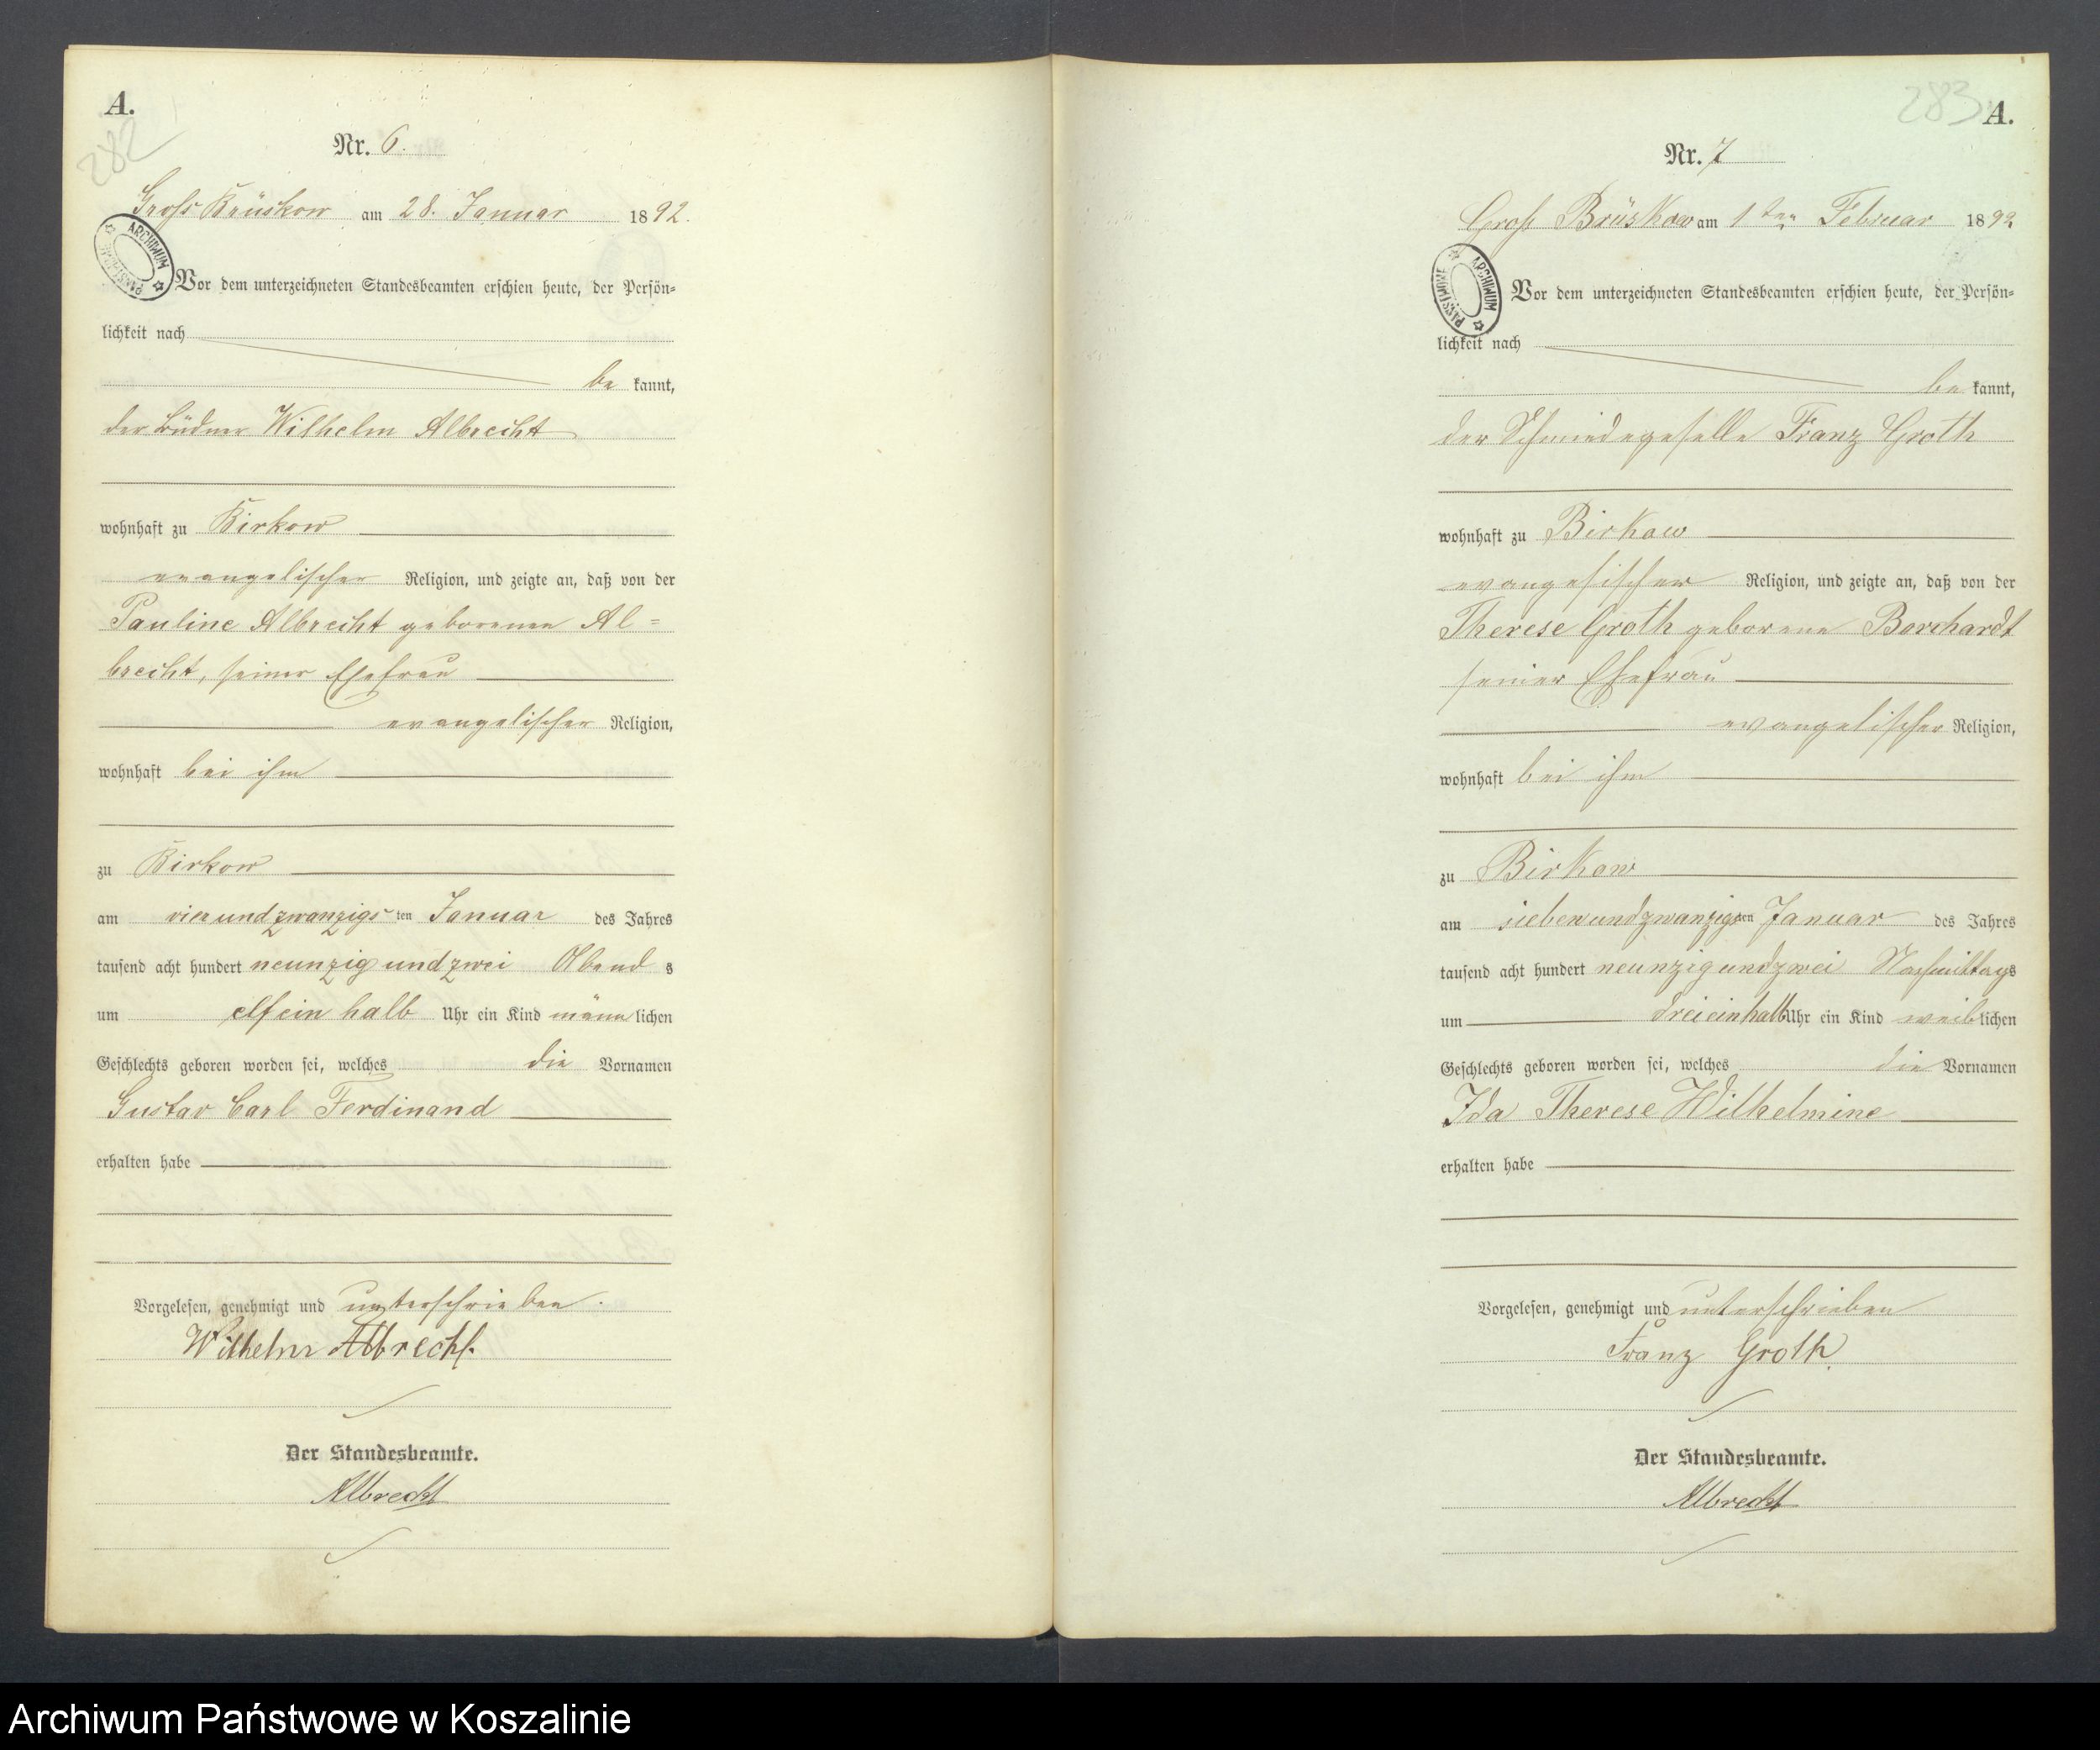 A.
282
Nr. 6.
Gross Brüskow am 28. Januar 1892.
ARCHIWUM PAŃSTWOWE
Vor dem unterzeichneten Standesbeamten erschien heute, der Persön=
lichkeit nach
be kannt,
der Büdner Wilhelm Albrecht
wohnhaft zu Birkow
evangelischer Religion, und zeigte an, daß von der
Pauline Albrecht geborenen Al=
brecht, seiner Ehefrau
evangelischer Religion,
wohnhaft bei ihm
zu Birkow
am vierundzwanzigsten Januar des Jahres
tausend acht hundert neunzig und zwei Abends
um elfeinhalb Uhr ein Kind männlichen
Geschlechts geboren worden sei, welches die Vornamen
Gustav Carl Ferdinand
erhalten habe
Vorgelesen, genehmigt und unterschrieben.
Wilhelm Albrecht.
Der Standesbeamte.
Albrecht
283
A.
Nr. 7
Groß Brüskow am 1ten Februar 1892
ARCHIWUM PAŃSTWOWE
Vor dem unterzeichneten Standesbeamten erschien heute, der Persön=
lichkeit nach
be kannt,
der Schmiedegeselle Franz Groth
wohnhaft zu Birkow
evangelischer Religion, und zeigte an, daß von der
Therese Groth geborene Borchardt
seiner Ehefrau
evangelischer Religion,
wohnhaft bei ihm
zu Birkow
am siebenundzwanzigsten Januar des Jahres
tausend acht hundert neunzig und zwei Nachmittags
um dreieinhalb Uhr ein Kind weiblichen
Geschlechts geboren worden sei, welches die Vornamen
Ida Therese Wilhelmine
erhalten habe
Vorgelesen, genehmigt und unterschrieben
Franz Groth.
Der Standesbeamte.
Albrecht
Archiwum Państwowe w Koszalinie